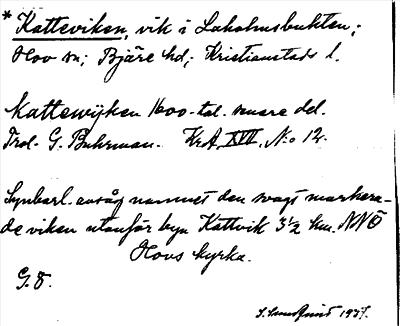 * Katteviken, vik i Laholmsbukten;
Hov sn; Bjäre hd; Kristianstads l.
Kattewijken 1600-tal. senare del.
Trol. G. Buhrman. KrA, XVII, N:o 12.
Synbarl. avsåg namnet den svagt markera-
de viken utanför byn Kattvik 3½ km. NNÖ
Hovs kyrka.
G. F.